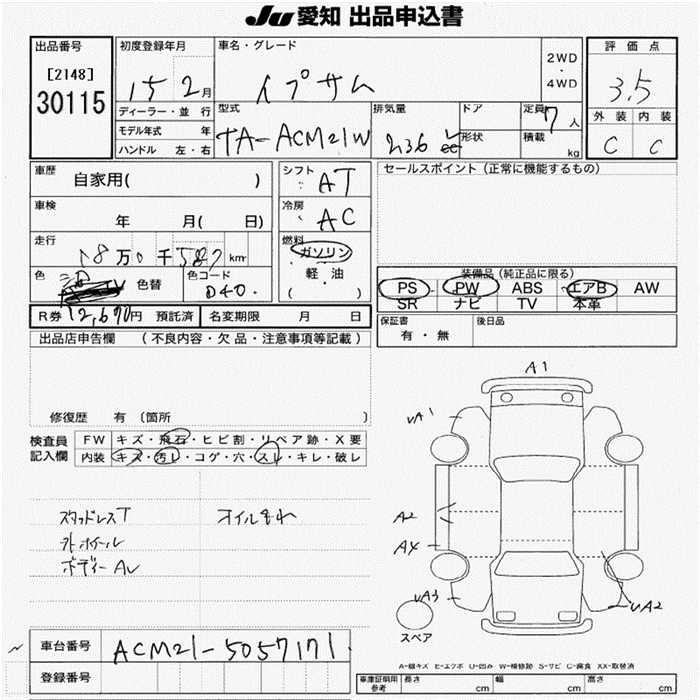 JU 愛知 出品申込書
出品番号
[2148]
30115
初度登録年月
15 2月
車名・グレード
イプサム
2WD
・
4WD
評価点
3.5
外装 内装
C C
ディーラー・並行
モデル年式 年
ハンドル 左・右
型式
TA-ACM21W
排気量
236
ドア
形状
定員
7人
積載
kg
車歴
自家用( )
車検
年 月( 日)
走行
18万0千587km
色
色替
色コード
040.
シフト
AT
冷房
AC
燃料
ガソリン
軽・油
( )
セールスポイント(正常に機能するもの)
装備品(純正品に限る)
PS PW ABS エアB AW
SR ナビ TV 本革
R券 12,670円 預託済 名変期限 月 日
保証書
有・無
後日品
出品店申告欄 (不良内容・欠品・注意事項等記載)
修復歴 有〔箇所 〕
検査員
記入欄
FW キズ・飛石・ヒビ割・リペア跡・X要
内装 キズ・汚レ・コゲ・穴・スレ・キレ・破レ
スタッドレスT
外ホイール
ボディーAU
オイルもれ
A1
UA1
A2
A4
UA3
UA2
スペア
車台番号
ACM21-5057171
登録番号
A-線キズ E-エクボ U-凹み W-補修跡 S-サビ C-腐食 XX-取替済
車庫証明用
参考
長さ cm 幅 cm 高さ cm